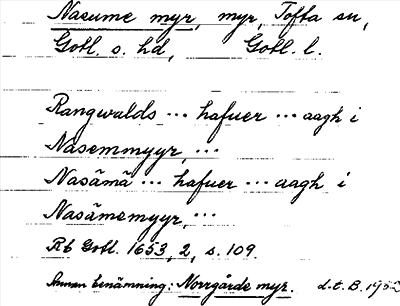 Nasume myr, myr, Tofta sn,
Gotl. s. hd, Gotl. l.
Rangwalds ... hafuer ... aagh i
Nasemmyyr, ...
Nasämä ... hafuer ... aagh i
Nasämemyyr, ...
Rb Gotl. 1653, 2, s. 109.
Annan benämning: Norrgårde myr. d.t. B. 1952